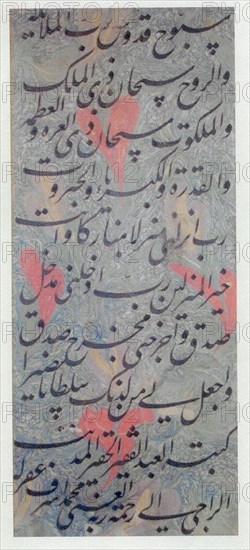 سبوح قدوس رب الملائكة
والروح سبحان ذى الملك
والملكوت سبحان ذى العزة والعظمة
والقدرة والكبرياء والجبروت
رب انزلنى منزلا مباركا وانت
خير المنزلين رب ادخلنى مدخل
صدق واخرجنى مخرج صدق
واجعل لى من لدنك سلطانا نصيرا
كتبه العبد الفقير الحقير المذنب
الراجى الى رحمة ربه الغنى محمد اشرف غفرله